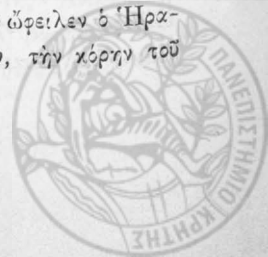 ὤφειλεν ὁ Ἡρα-
ν, τὴν κόρην τοῦ
ΠΑΝΕΠΙΣΤΗΜΙΟ ΚΡΗΤΗΣ